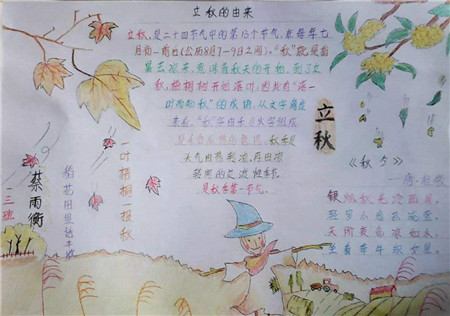 立秋的由来
立秋,是二十四节气中的第13个节气,在每年七
(公历8月7-9日之间)。"秋"就是指
暑去凉来,意味着秋天的开始。到了立
秋,梧桐树开始落叶,因此有"落一
叶而知秋"的成语,从文字角度
来看,"秋"字由禾与火字组成
是禾谷成熟的意思,秋季是
天气由热转凉,再由凉
转寒的过渡性季
是秋季第一节气。
立秋
《秋夕》
—唐·杜牧
银烛秋光冷画屏,
轻罗小扇扑流萤。
天阶夜色凉如水,
坐看牵牛织女星。
一叶梧桐一报秋
稻花田里话丰收
蔡雨衡
一三班